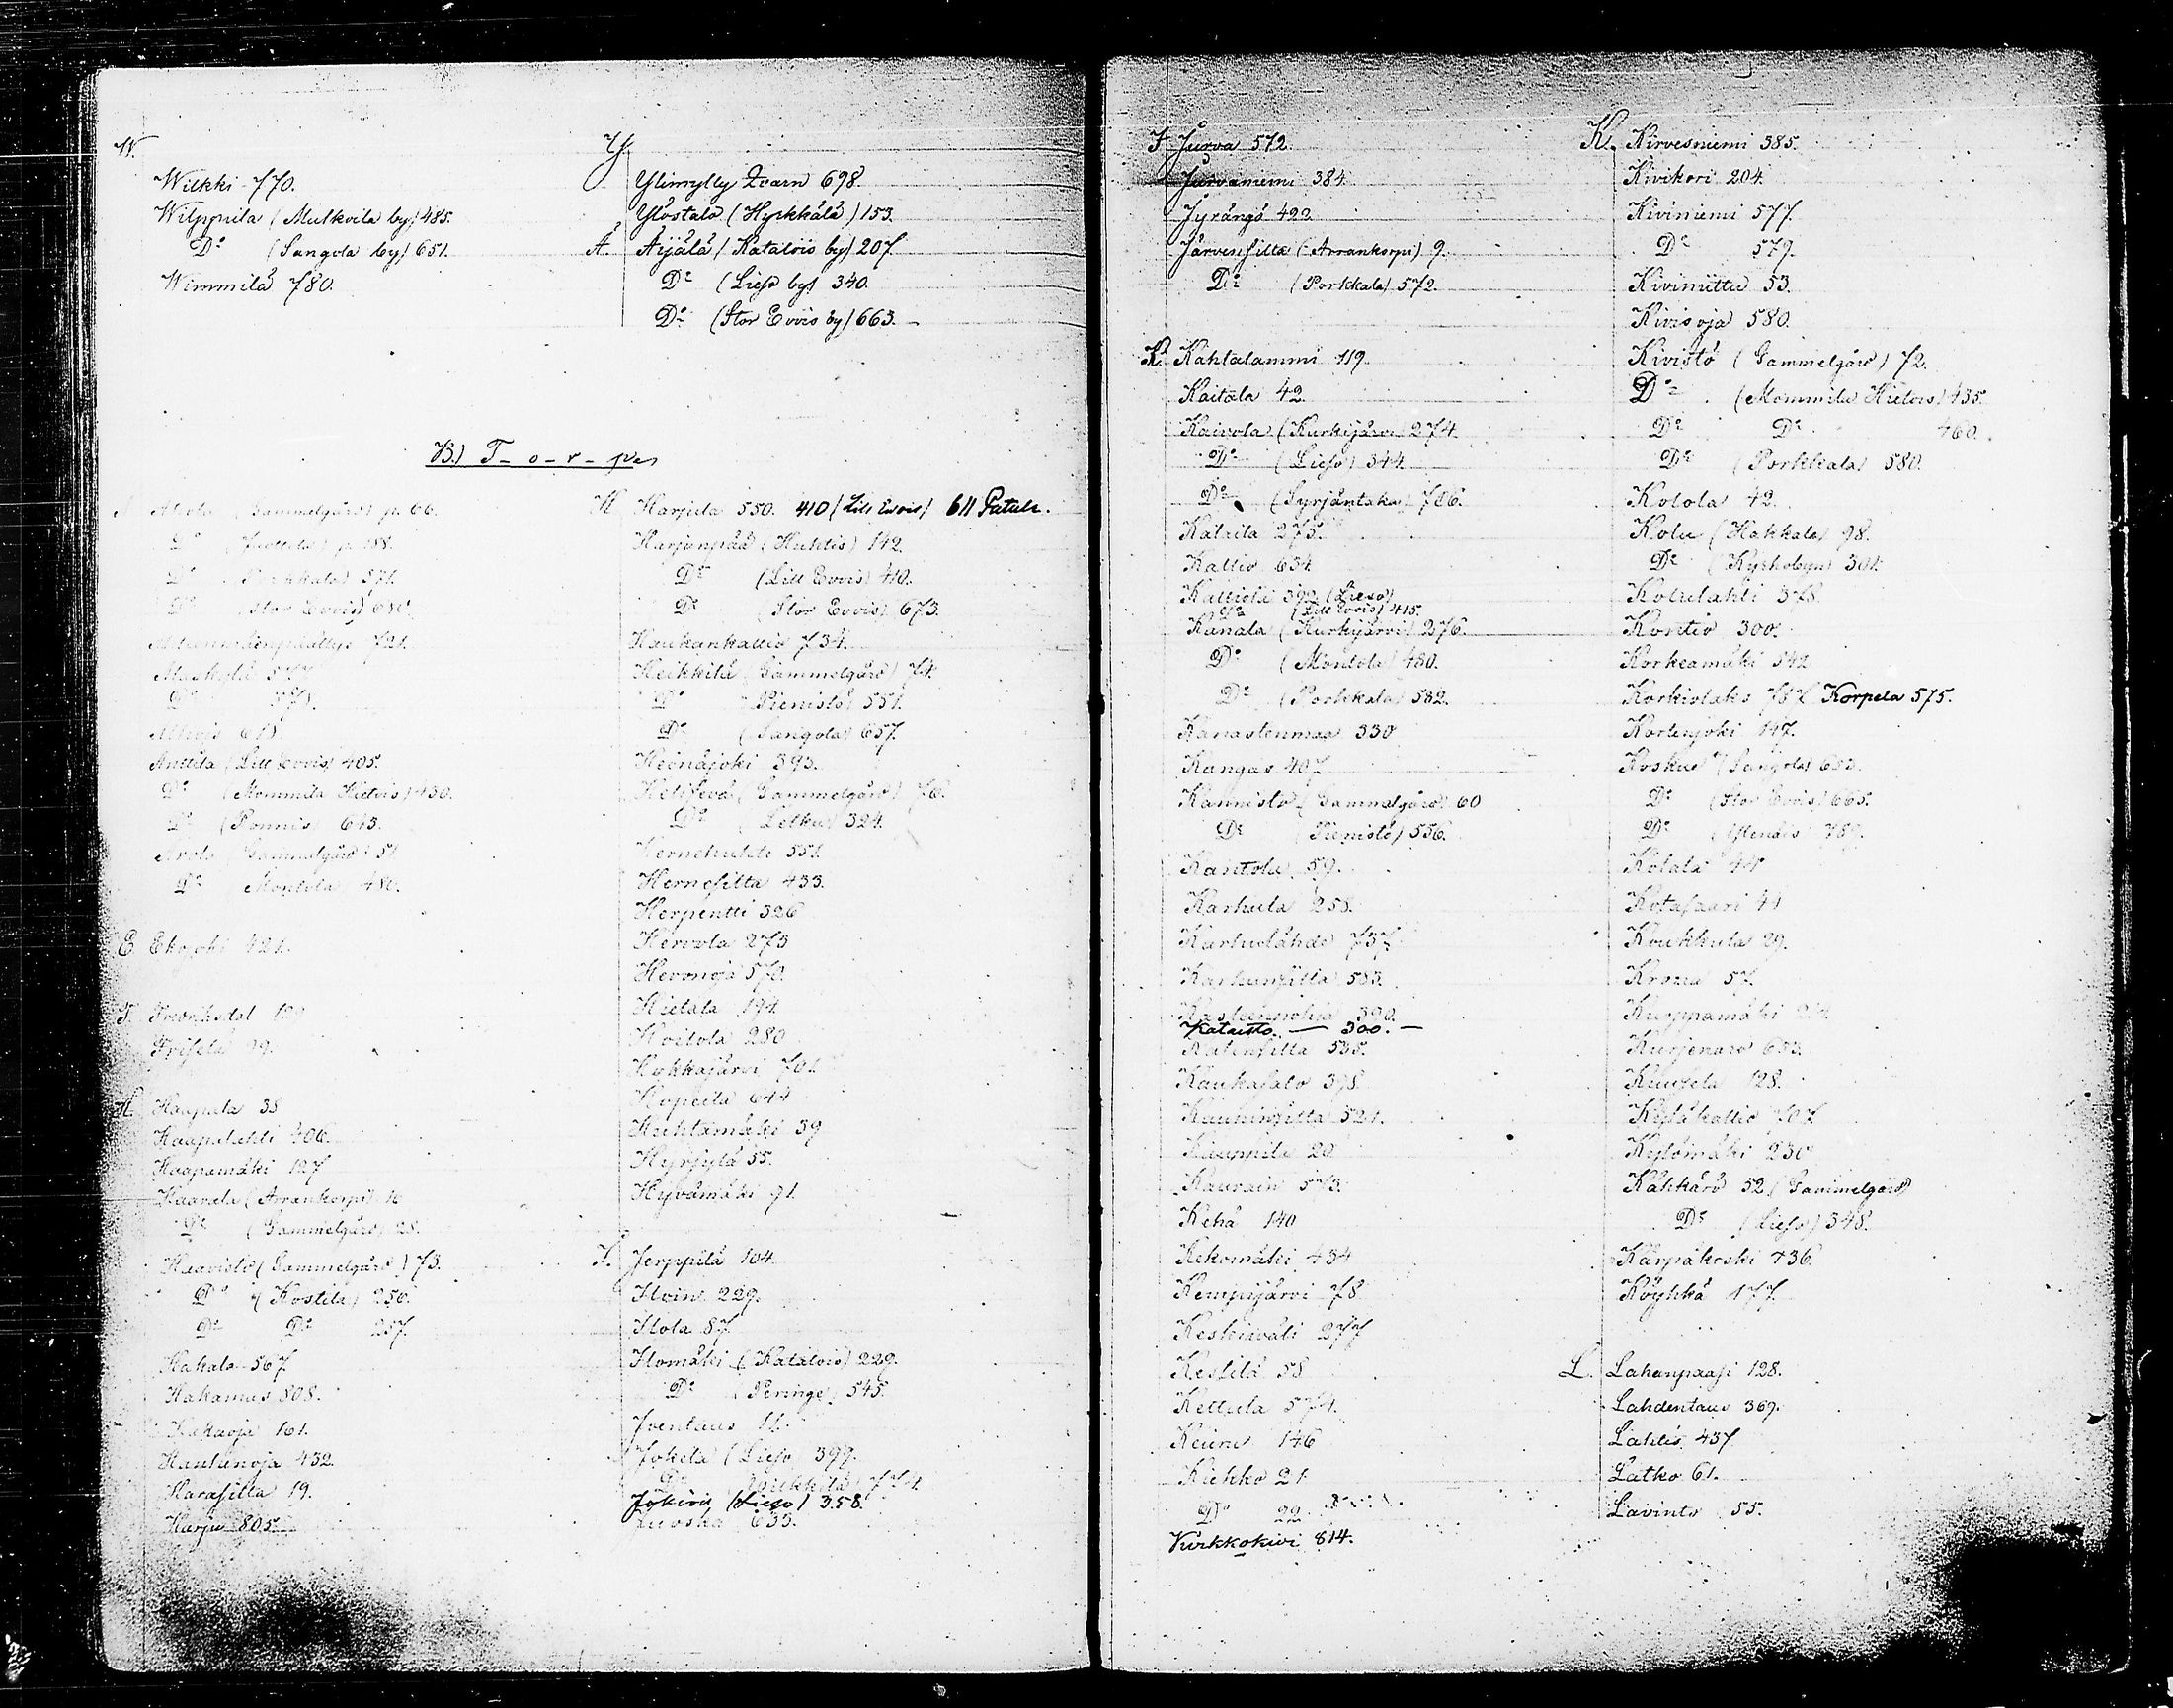 W.
Wilkki 770.
Wilppuila (Mulkoila by) 485.
Do (Sangola by) 651.
Wimmilä 780.
Y
Ylimylly Qvarn 698.
Ylöstalo (Hyrkkälä) 153.
Ä. Äijälä (Katalois by) 207.
Do (Lieso by) 340.
Do (Stor Evois by) 663.
B.) T-o-r-per
A Alola (Gammelgård) p. 66.
Do (Juttila) p. 188.
Do (Porkkala) 571.
Do (Stor Evois) 680.
721.
Do
618.
Anttila (Lill Evois) 405.
Do (Mommila Hietois) 430.
Do (Ronnis) 643.
Arola (Gammelgård) 51.
Do Montola 480.
E Ekojoki 421.
F. Fredriksdal
29.
H. Haapala 38
Haapalahti 406.
Haapamäki 127
Haavela (Arrankorpi) 10
Do (Gammelgård) 28.
Haavisto (Gammelgård) 73.
Do (Kostila) 256.
Do Do 257.
Hakala 567
Hakamus 808.
Hakaoja 161.
Hankanoja 432.
Harasilta 19.
Harju 805.
H Harjula 550. 410 (Lill Evois) 611 Patala.
Harjunpää (Huhtis) 142.
Do (Lill Evois) 410.
Do (Stor Evois) 673.
Haukankallio 734.
Heikkilä (Gammelgård) 74.
Do Pienistö 551.
Do (Sangola) 657.
Heinäjoki 393.
(Gammelgård) 76.
Do (Letku) 324.
Hernehuhta 551.
Hernesilta 433.
Herpentti 326
Hervola 273
Hevonoja 570.
Hietala 194.
Hoilola 280
Hokkajärvi 701.
Hopeila 644
Huhtamäki 39
Hyrsylä 55.
Hyvämäki 91.
J. Jerppilä 104.
Iloin 229.
Ilola 87.
Ilomäki (Katalois) 229.
Do (Peringe) 545.
Joentaus 11.
Jokela (Lieso 399.
Do
Jokivi (Lieso) 358.
635.
J Jurva 572.
Jurvaniemi 384.
Jyrängö 422
Järvensilta (Arrankorpi) 9.
Do (Porkkala) 572.
K. Kahtalammi 119.
Kaitala 42.
Kaivola (Kurkijärvi) 274.
Do (Lieso) 344.
Do (Syrjäntaka) 756.
Kalaila 275.
Kallio 634
Kalliola 392 (Lieso)
Do (Lill Evois) 415.
Kanala (Kurkijärvi) 276.
Do (Montola) 480.
Do (Porkkala) 582.
Kanastenmaa 330
Kangas 407
Kannisto (Gammelgård) 60
Do (Pienistö) 556.
Kantola 59.
Karhula 258.
Karhulähde 737.
Karhunsilta 583.
390.
Kataisto — 300. —
Katensilta 535.
Kaukasalo 398.
Kauninsilta 521.
Kaunnila 20
Kaurain 573.
Kehä 140
Kekomäki 434
Kempijärvi 78
Keskiväli 277
Kestilä 58
Kettula 574.
Keuru 146
Kiekko 21
Do 22
Kirkkokivi 814.
K. Kirvesniemi 385.
Kivikori 204.
Kiviniemi 577.
Do 579.
Kiviniittu 53.
Kivisoja 580.
Kivistö (Gammelgård) 72.
Do (Mommila Hietois) 435.
Do Do 460.
Do (Porkkala) 580.
Kolola 42.
Kolu (Hakkala) 98.
Do (Kyrkobyn) 301.
Kolulahti 378.
Kontio 300.
Korkeamäki 542
Korkiolaks 787 Korpela 575.
Kortenjoki 147.
Koskue (Sangola) 652.
Do (Stor Evois) 665.
Do
Kotala 44
Kotasaari 41
Koukkula 29.
Krona 57.
Kurppamäki
Kurjenaro 653.
Kuusela 128.
Kyläkallio 707.
Kylömäki 230
Kähkärö 52 (Gammelgård)
Do (Lieso) 348.
Kärpäkoski 736.
Köyhkä 177.
L. Lahanpaasi 128.
Lahdentaus 369.
Lahtis 437
Latko 61.
Lavinto 55.